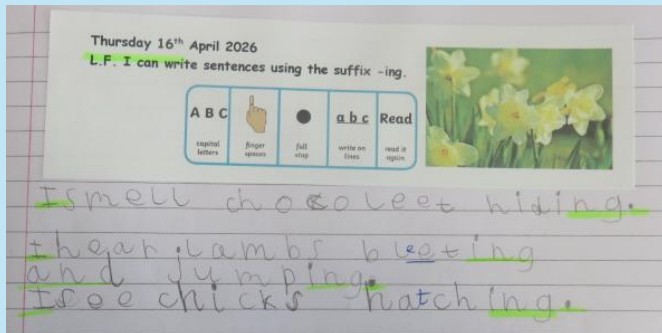 Thursday 16th April 2026
L.F. I can write sentences using the suffix -ing.
A B C
a b c Read
capital letters
finger spaces
full stop
write on lines
read it again
I smell chocoleet hiding.
I hear lambs bleeting
and jumping.
I see chicks hatching.